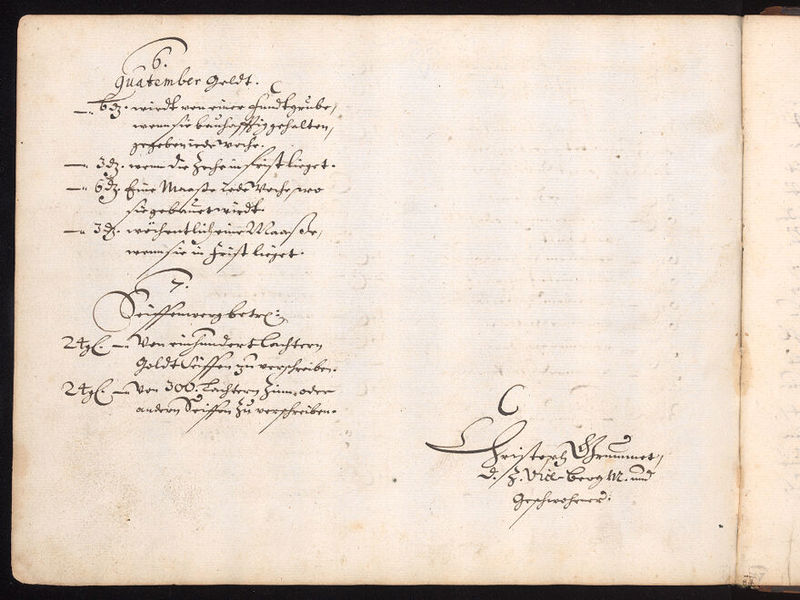 6.
Quatember Geldt.
—. 6 ₰. wirdt von einer Fundtgrube,
wenn sie bauhafftig gehalten,
gegeben iede Woche.
—. 3 ₰. wenn die Zeche in frist lieget.
—. 6 ₰. Eine Maaße iede Woche, wo
sie gebauet wirdt.
—. 3 ₰. wöchentlich eine Maaße,
wenn sie in Frist lieget.
7.
Seiffenwerg betr:
24 gl. —. Von einhundert Lachtern
Goldt Seiffen zu verschreiben.
24 gl. —. Von 300. Lachtern Zinn, oder
andern Seiffen zu verschreiben.
Christoph Grummet,
d. Z. Vice-Berg M. und
Geschworner.